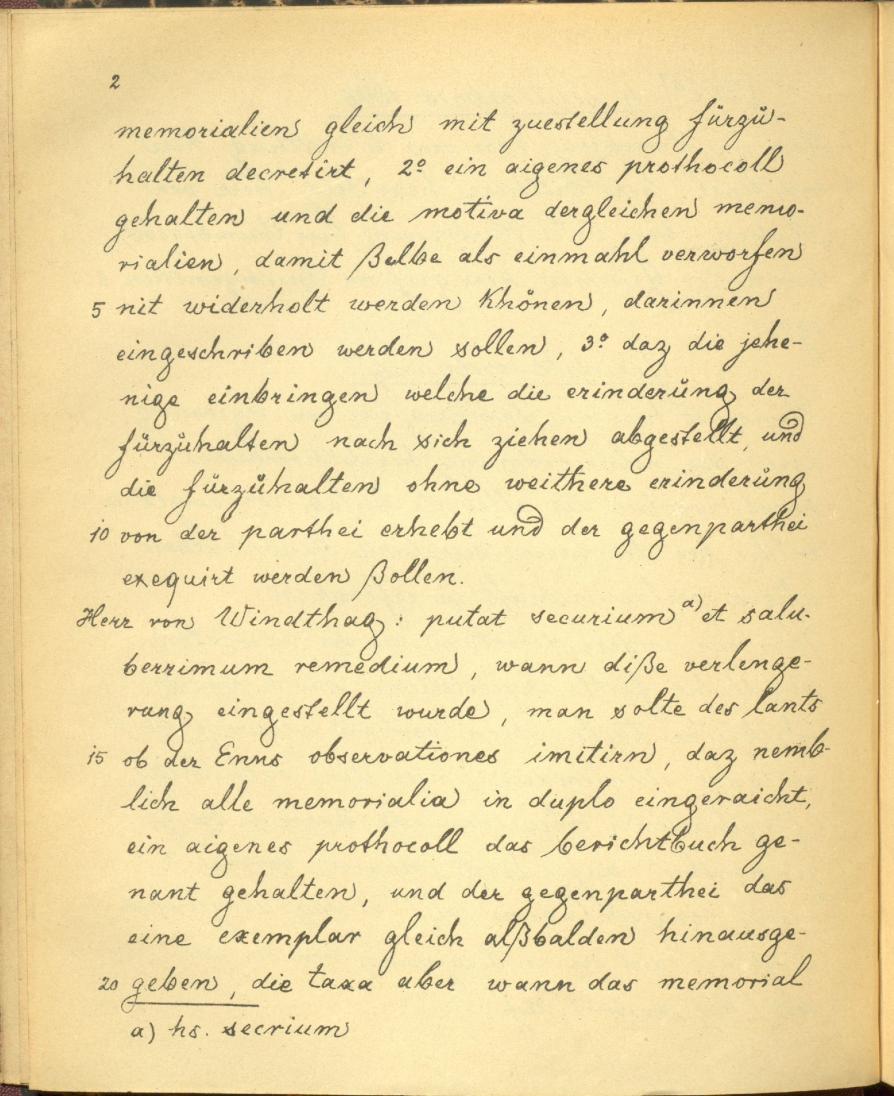 2
memorialien gleich mit zuestellung fürzŭ-
halten decretirt, 2º ein aigenes prothocoll
gehalten und die motiva dergleichen memo-
rialien, damit ßelbe als einmahl verworfen
5 nit widerholt werden khönen, darinnen
eingeschriben werden sollen, 3º daz die jehe-
nige einbringen welche die erinderŭng der
fürzŭhalten nach sich ziehen abgestellt, und
die fürzŭhalten ohne weithere erinderŭng
10 von der parthei erhebt und der gegenparthei
exequirt werden ßollen.
Herr von Windthag: putat securium a) et salu-
berrimum remedium, wann diße verlenge-
rung eingestellt wurde, man solte des lants
15 ob der Enns observationes imitirn, daz nemb-
lich alle memorialia in duplo eingeraicht,
ein aigenes prothocoll das berichtbuch ge-
nant gehalten, und der gegenparthei das
eine exemplar gleich alßbalden hinausge-
20 geben, die taxa aber wann das memorial
a) hs. secrium